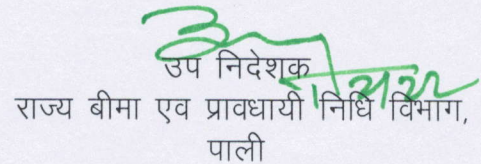 उप निदेशक
राज्य बीमा एव प्रावधायी निधि विभाग,
पाली